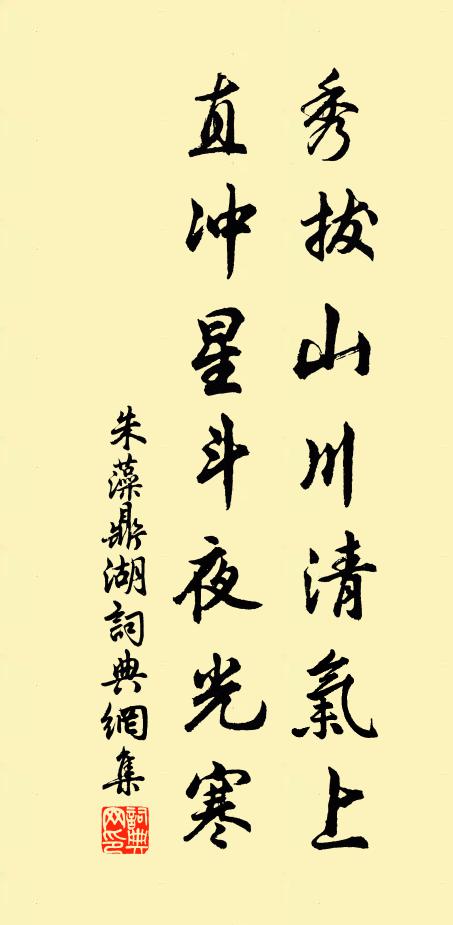 秀拔山川清氣上
直冲星斗夜光寒
朱藻鼎湖詞典網集
詞典网印